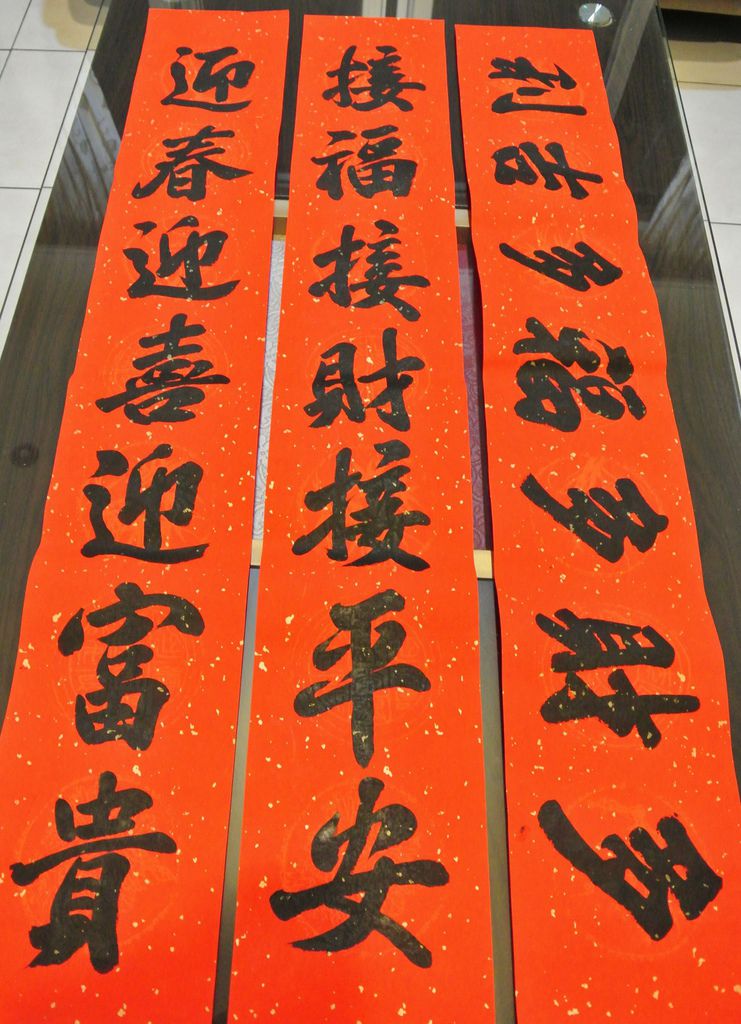 迎春迎喜迎富貴
接福接財接平安
多財多福多吉利